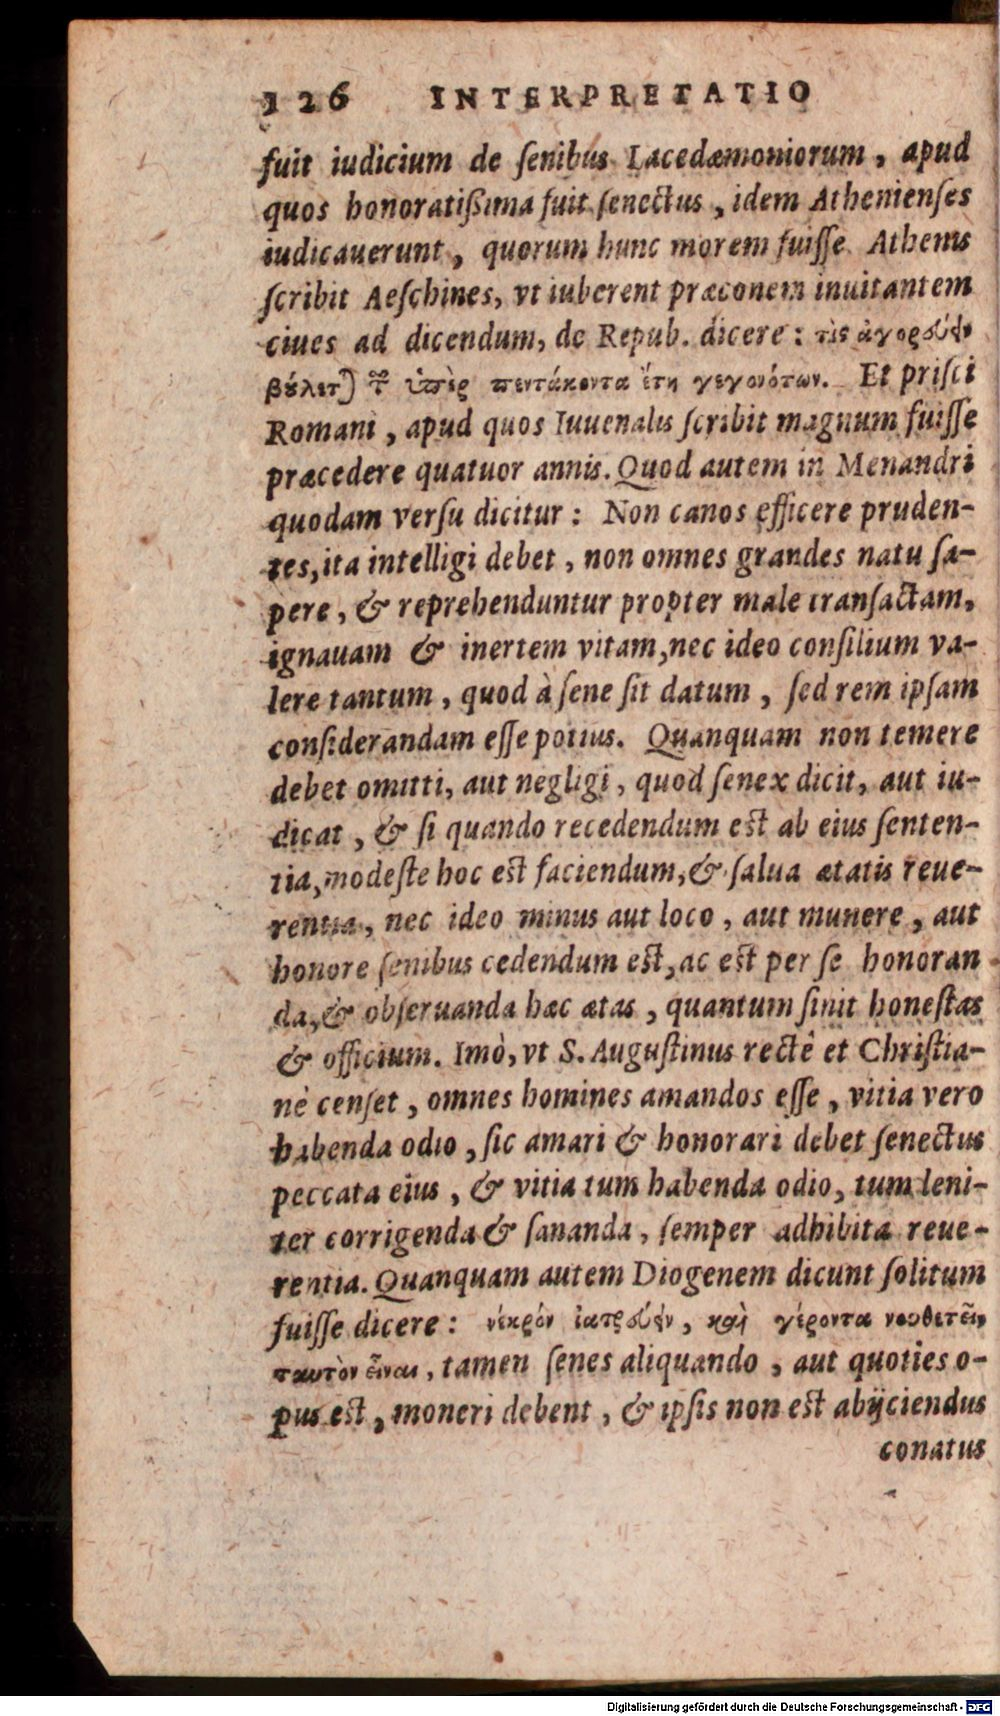 126 INTERPRETATIO
fuit iudicium de ſenibus Lacedæmoniorum, apud
quos honoratißima fuit ſenectus, idem Athenienſes
iudicauerunt, quorum hunc morem fuiſſe Athenis
ſcribit Aeſchines, vt iuberent præconem inuitantem
ciues ad dicendum, de Repub. dicere: τὶς ἀγορεύειν
βούλεται τῶν ὑπὲρ πεντάκοντα ἔτη γεγονότων. Et priſci
Romani, apud quos Iuuenalis ſcribit magnum fuiſſe
præcedere quatuor annis. Quod autem in Menandri
quodam verſu dicitur: Non canos efficere pruden-
tes, ita intelligi debet, non omnes grandes natu ſa-
pere, & reprehenduntur propter male tranſactam,
ignauam & inertem vitam, nec ideo conſilium va-
lere tantum, quod à ſene ſit datum, ſed rem ipſam
conſiderandam eſſe potius. Quanquam non temere
debet omitti, aut negligi, quod ſenex dicit, aut iu-
dicat, & ſi quando recedendum eſt ab eius ſenten-
tia, modeſte hoc eſt faciendum, & ſalua ætatis reue-
rentia, nec ideo minus aut loco, aut munere, aut
honore ſenibus cedendum eſt, ac eſt per ſe honoran
da, & obſeruanda hæc ætas, quantum ſinit honeſtas
& officium. Imò, vt S. Auguſtinus rectè et Chriſtia-
nè cenſet, omnes homines amandos eſſe, vitia vero
habenda odio, ſic amari & honorari debet ſenectus
peccata eius, & vitia tum habenda odio, tum leni-
ter corrigenda & ſananda, ſemper adhibita reue-
rentia. Quanquam autem Diogenem dicunt ſolitum
fuiſſe dicere: νέκρόν ἰατρεύειν, καὶ γέροντα νουθετεῖν
ταυτὸν εἶναι, tamen ſenes aliquando, aut quoties o-
pus eſt, moneri debent, & ipſis non eſt abijciendus
conatus
Digitalisierung gefördert durch die Deutsche Forschungsgemeinschaft - DFG